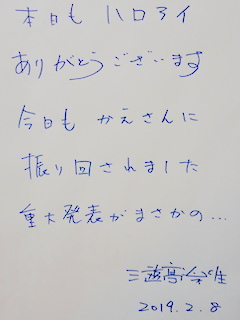 本日も ハロアイ
ありがとうございます
今日も かえさんに
振り回されました
重大発表がまさかの…
三遊亭
2019.2.8